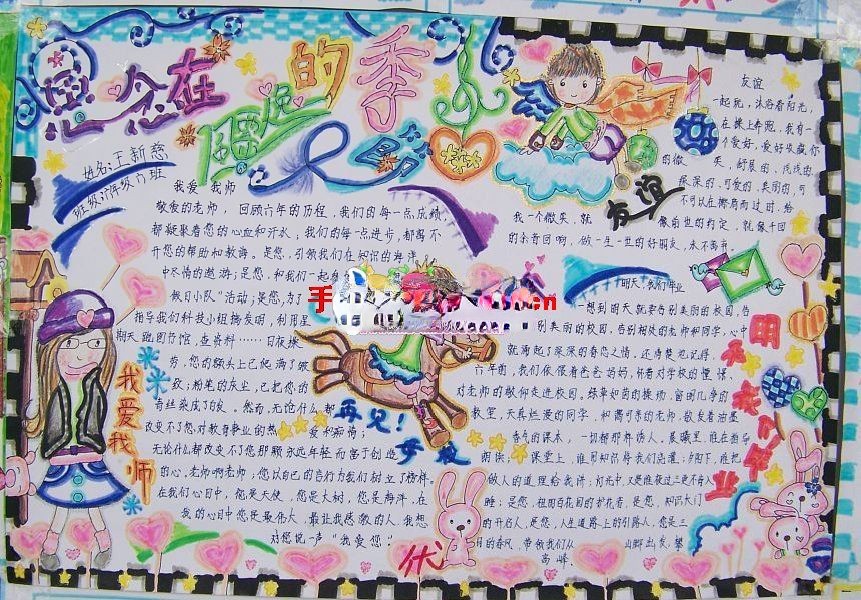 思念在
墨色的季节
姓名:王新慈
班级:六年级六班
我爱我师
敬爱的老师，回顾六年的历程，我们的每一点成绩，
都凝聚着您的心血和汗水，我们的每一点进步，都离不
开您的帮助和教诲。是您，引领我们在知识的海洋
中尽情的遨游；是您，和我们一起
假日小队"活动；是您，为了
指导我们科技小组搞发明，利用星
期天跑图书馆，查资料……日复
，您的额头上已爬满了
；粉笔的灰尘，已把您的
青丝染成了白发。然而，无论什么都
改变不了您对教育事业的热爱和痴情；
无论什么都改变不了您那颗永远年轻而富于创造
的心。老师啊老师；您以自己的言行为我们树立了榜样。
在我们心目中，您是天使，您是大树，您是海洋，在
我的心目中您是最伟大，最让我感激的人，我想
对您说一声"我爱您"
我爱我师
再见！
母校
优
友谊
一起玩，沐浴着阳光，
在操上奔跑，我有一
个爱好，爱好收藏你
的微笑，舒展的，浅浅的
深深的，可爱的，美丽的，可
不可以在擦肩而过时，给
我一个微笑，就像前世的约定，就像千回
的余音回响，做一生一世的好朋友，永不离弃。
友谊
明天，我们毕业
一想到明天就要告别美丽的校园，告
别美丽的校园，告别相处的老师和同学，心中
就涌起了深深的眷恋之情，还清楚地记得，
六年前，我们依偎着爸爸妈妈，怀着对学校的憧憬，
对老师的敬仰走进校园。绿草如茵的操场，窗明几净的
教室，天真烂漫的同学，和蔼可亲的老师，散发着油墨
香气的课本，一切都那样诱人，晨曦里，谁在指导
朗读；课堂上，谁用知识将我们浇灌；夕阳下，谁把
做人的道理给我讲；灯光中，又是谁夜过三更不肯入
睡；是您，祖国百花园的护花者，是您，知识大门
的开启人，是您，人生道路上的引路人，您是三
月的春风，带领我们从山脚出发，攀
高峰，
明天我们毕业